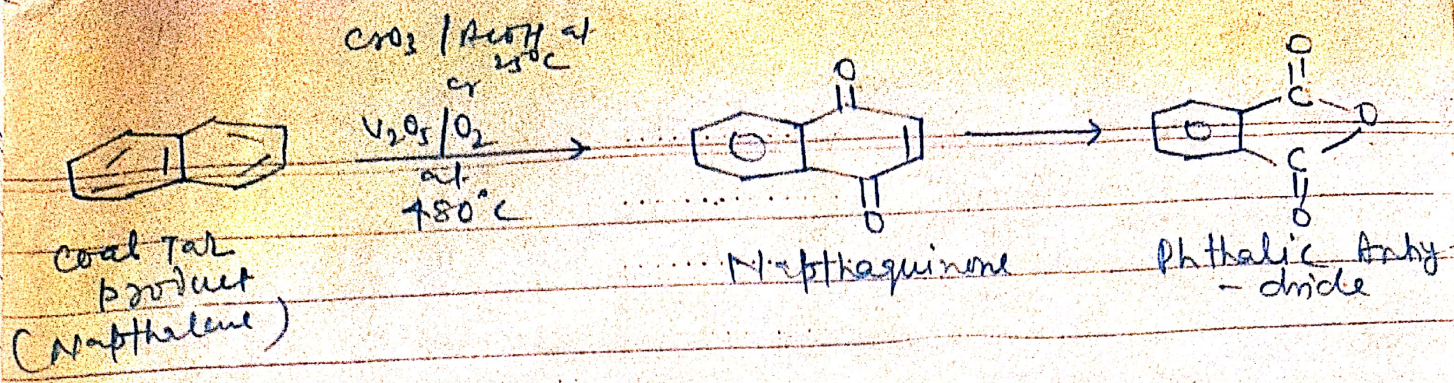 CrO3 / AcOH at
25°C
or
V2O5/O2
at
480°C
O
O
O
C
O
C
O
Coal Tar
product
(Napthalene)
Napthaquinone
Phthalic Anhy
- dride